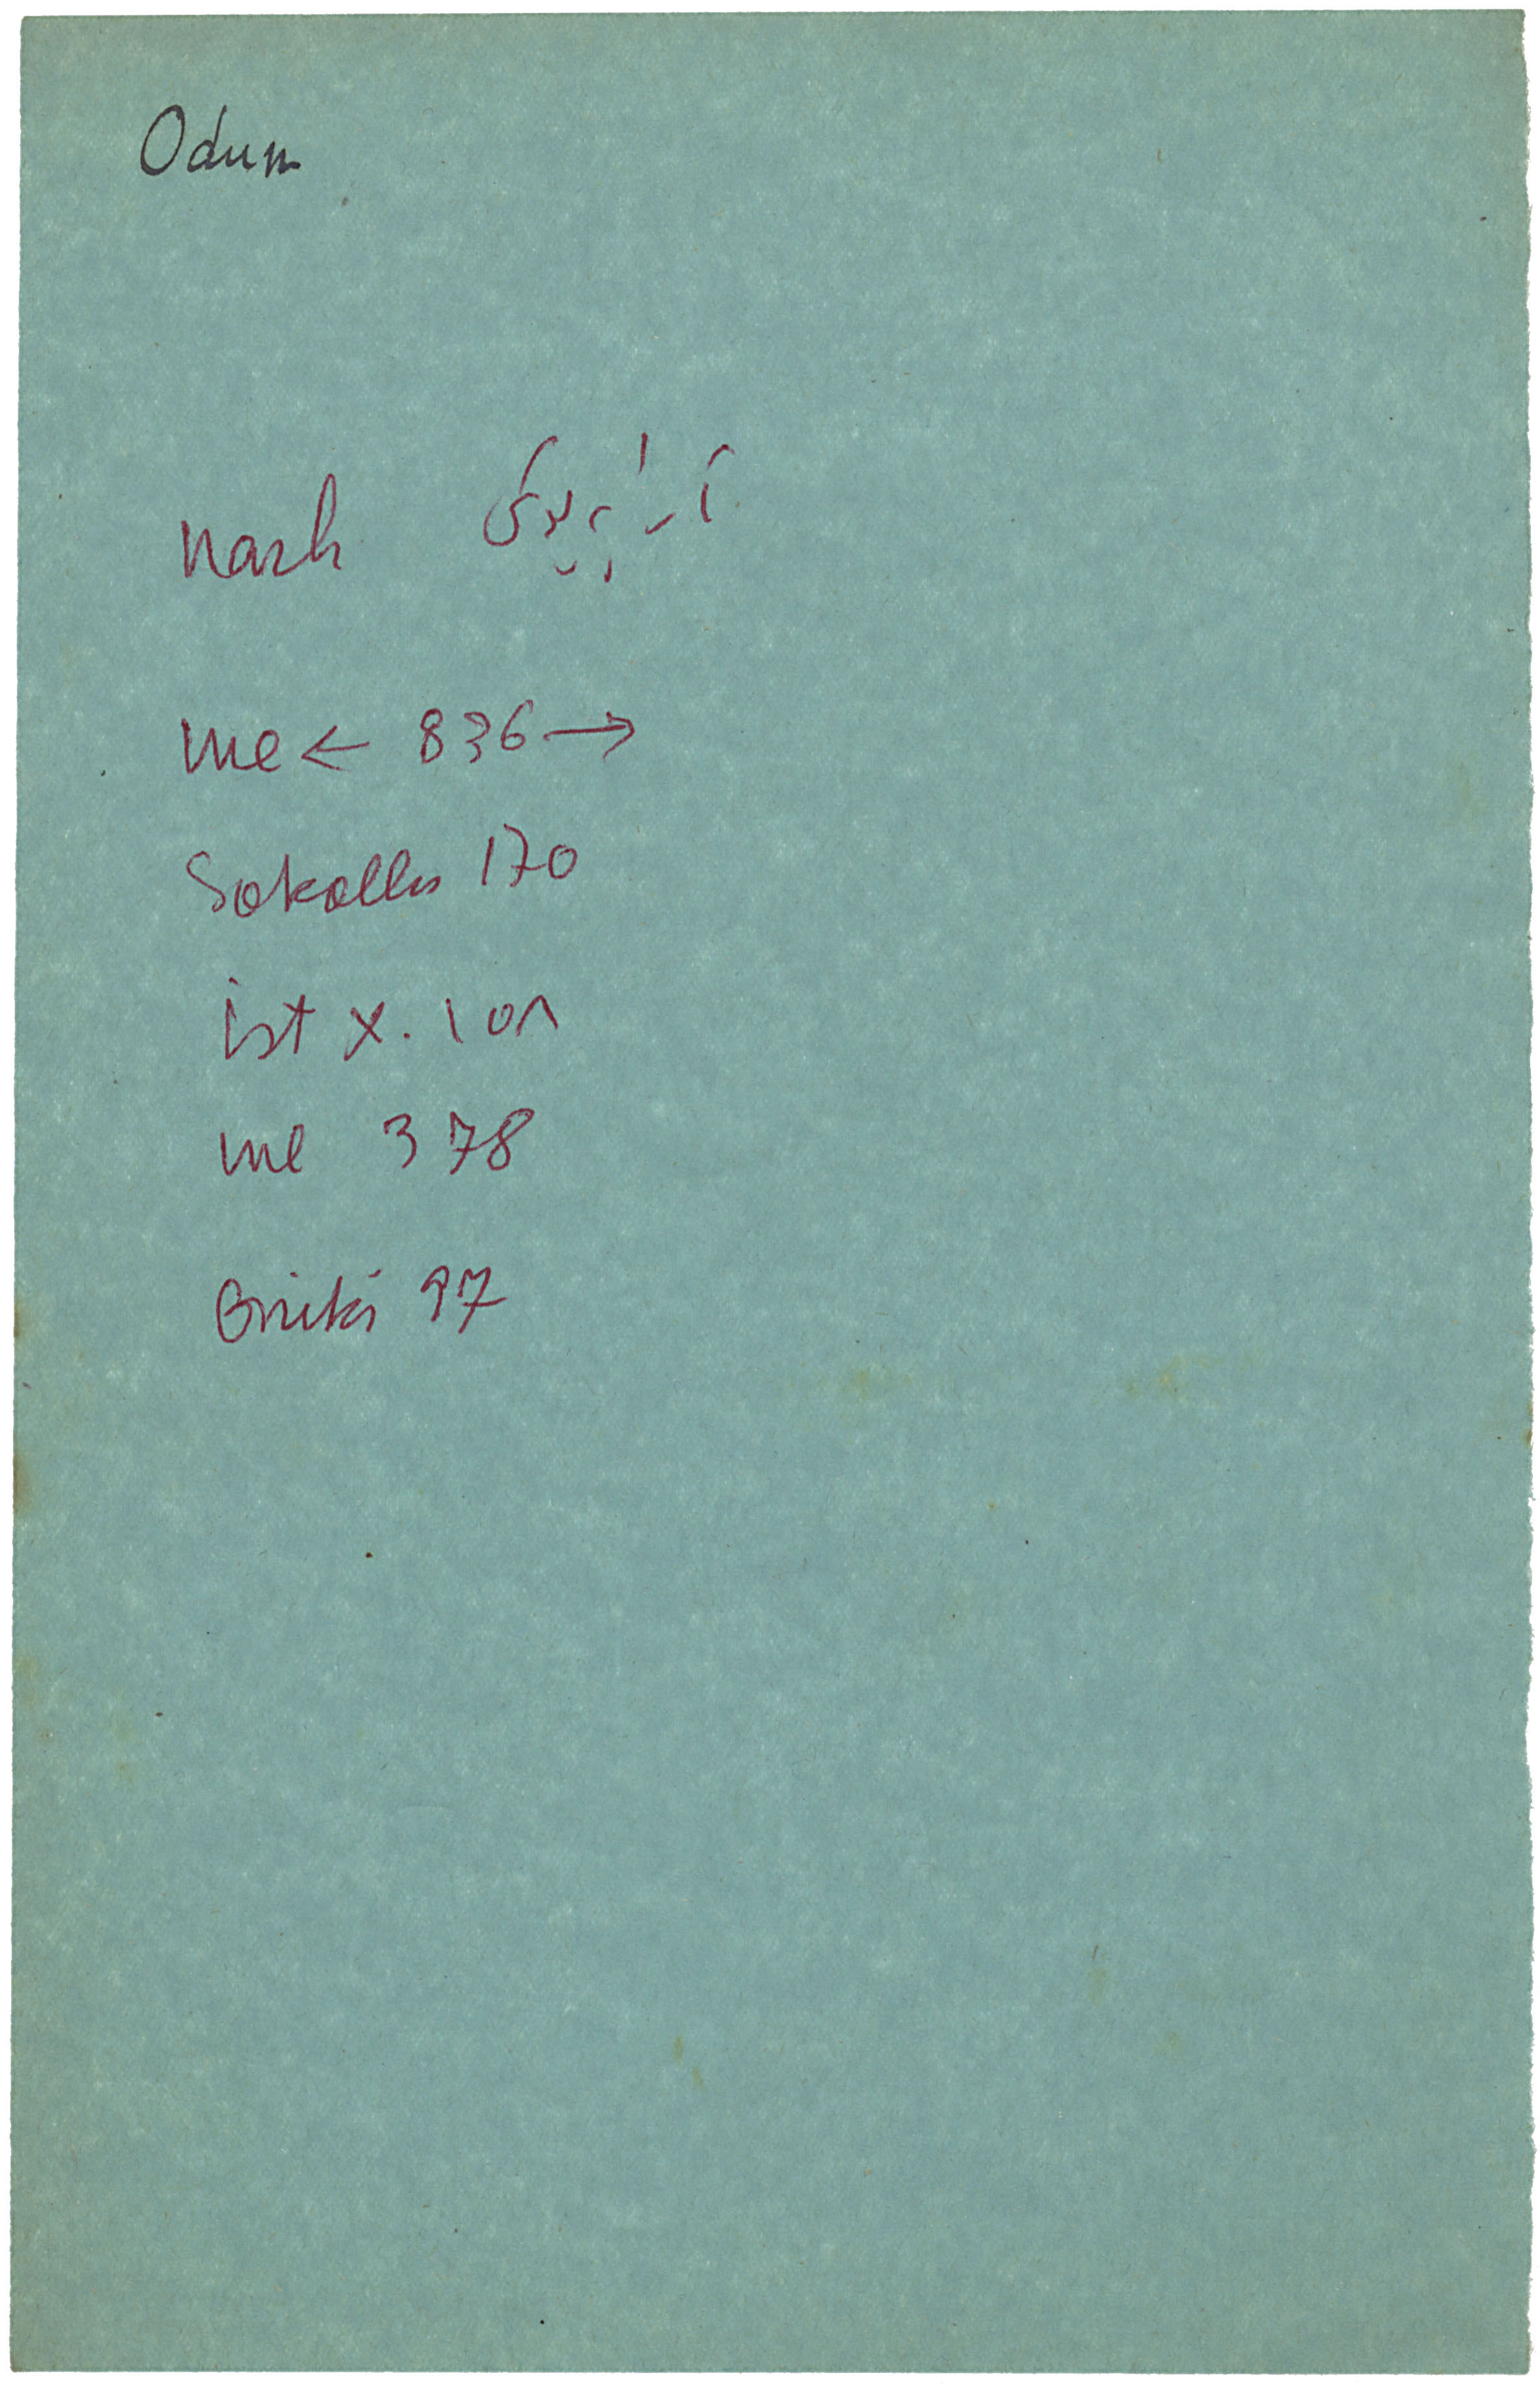 Odun
narh
me ← 836 →
Sokollu 170
ist X. 101
me 378
97